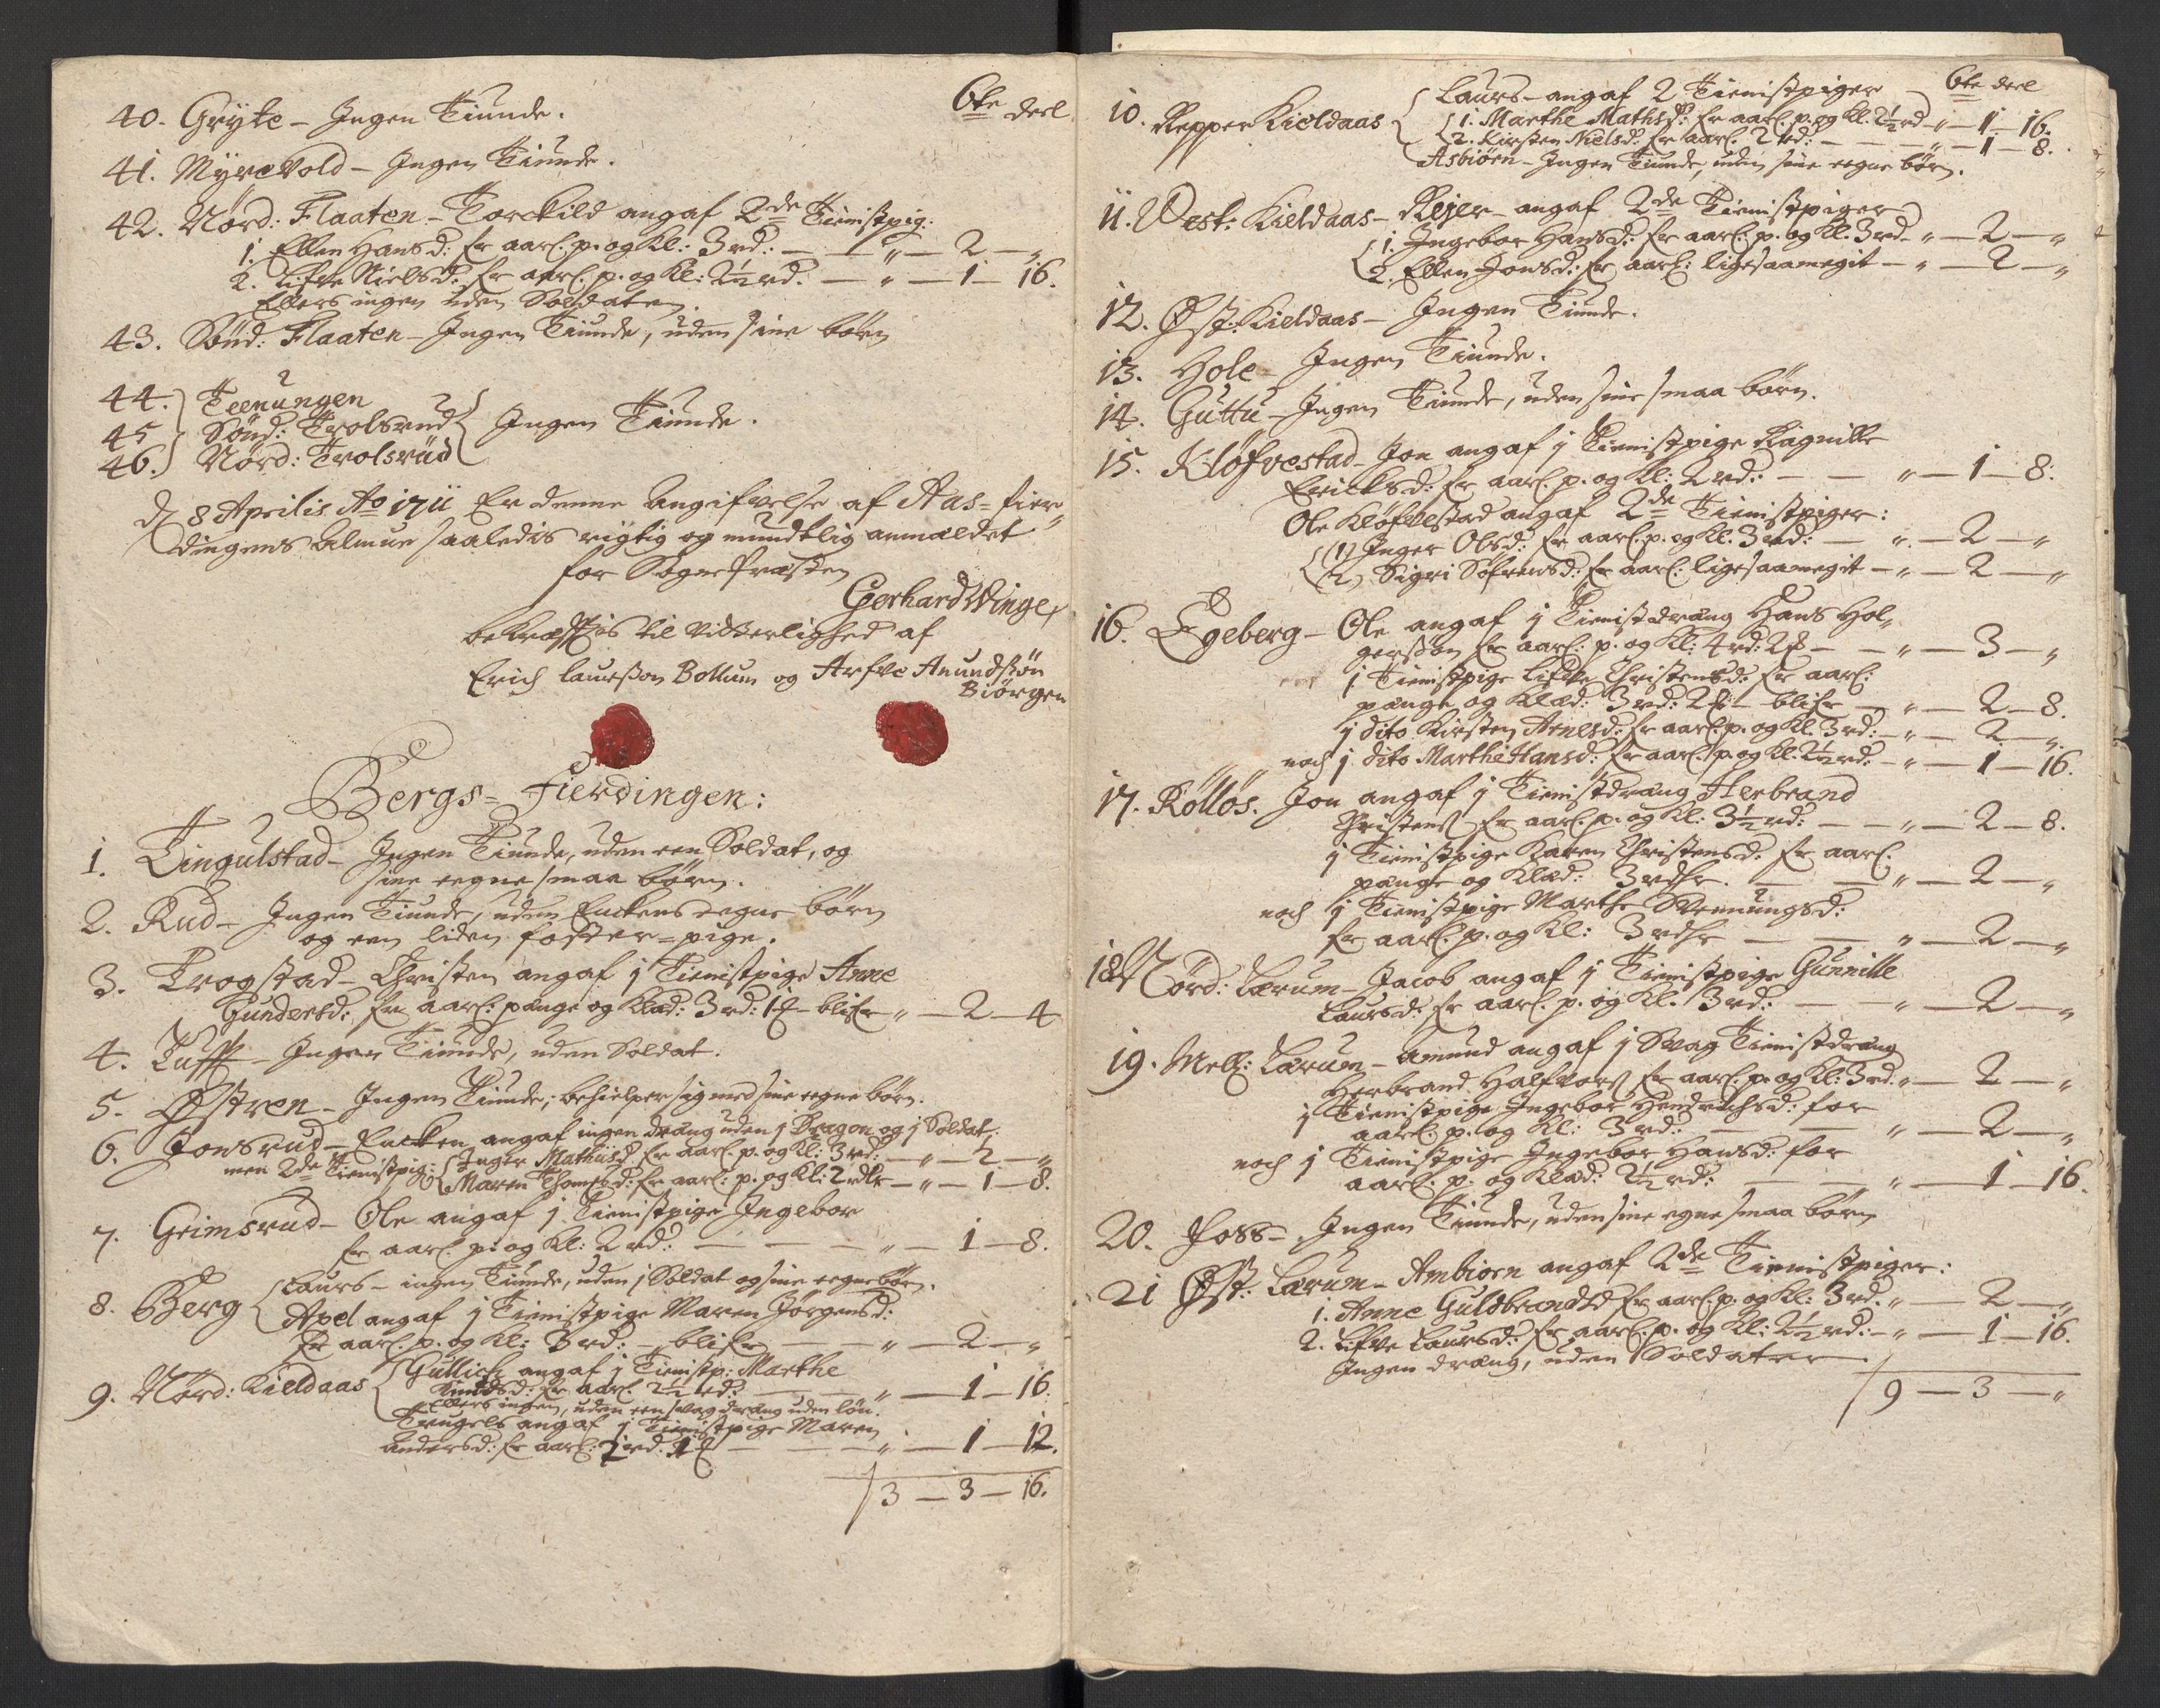 6te deel
40. Gryte – Ingen Tiunde.
41. Myrevold – Ingen Tiunde.
42. Nørd: Flaaten – Torckild angaf 2de Tienistpig:
1. Ellen Hansd: for aarl: p. og Kl: 3 rd: — „ — 2 — „
2. Lifve Nielsd: for aarl: p. og Kl: 2½ rd: — „ — 1 — 16.
Ellers ingen uden Soldaten.
43. Sønd: Flaaten – Ingen Tiunde, uden sine børn
44. Teenungen
45 Sønd: Trolsrud } Ingen Tiunde.
46. Nørd: Trolsrud
d 8 Aprilis Ao 1711 Er denne Angifvelse af Aas-fier-
dingens Almue saaledis rigtig og mundtlig anmældet
for Sognepræsten
Gerhard Winge
bekræfftis til vitterlighed af
Erich Laurssøn Bollum og Arfve Anundssøn
Biørgen
Bergs-Fierdingen:
1. Tingulstad – Ingen Tiunde, uden een Soldat, og
sine eegne smaa børn.
2. Rud – Ingen Tiunde, uden Enckens eegne børn
og een liden foster-pige.
3. Trogstad – Christen angaf 1 Tienistpige Anne
Gundersd: for aarl: pænge og Klæd: 3 rd: 1 – blifr „ — 2 — 4
4. Tufft – Ingen Tiunde, uden Soldat.
5. Østren – Ingen Tiunde; behielper sig med sine eegne børn.
6. Jonsrud – Encken angaf ingen dræng uden 1 Dragon og 1 Soldat:
men 2de Tienistpig: { Inger Mathiisd for aarl: p. og Kl: 3 rd: — „ — 2 — „
Maren Thomesd: for aarl: p. og Kl: 2 rdlr — „ — 1 — 8.
7. Grimsrud – Ole angaf 1 Tienistpige Ingebor
for aarl: p. og Kl: 2 rd: — — — „ — 1 — 8.
8. Berg { Laurs – ingen Tiunde, uden 1 Soldat og sine eegne børn.
Axel angaf 1 Tienistpige Maren Jørgensd:
for aarl: p. og Kl: 3 rd: — blifr — — „ — 2 — „
9. Nørd: Kieldaas { Gullich angaf 1 Tienistp: Marthe
Knudsd: for aarl: 2½ rd: — — „ — 1 — 16.
Ellers ingen, uden een svag dræng uden løn.
Trugels angaf 1 Tienistpige Maren
Andersd: for aarl: 2 rd. 1 — — „ — 1 — 12.
3 — 3 — 16.
6te deel
10. Repper Kieldaas { Laurs – angaf 2 Tienistpiger
1. Marthe Mathsd: for aarl: p. og Kl. 2½ rd — „ — 1 — 16.
2. Kirsten Nielsd: for aarl: 2 rd: — — „ — 1 — 8.
Asbiørn – Ingen Tiunde, uden sine eegne børn.
11. Vest: Kieldaas – Rejer – angaf 2de Tienistpiger
1. Ingebor Hansd: for aarl: p. og Kl: 3 rd — „ — 2 — „
2. Ellen Jonsd: for aarl: ligesaamegit — „ — 2 — „
12. Øst: Kieldaas – Ingen Tiunde.
13. Hole – Ingen Tiunde.
14. Guttu – Ingen Tiunde, uden sine smaa børn.
15. Kløfvestad – Jon angaf 1 Tienistpige Ragnille
Ericksd: for aarl: p. og Kl: 2 rd: — — „ — 1 — 8.
Ole Kløfvestad angaf 2de Tienistpiger:
1) Inger Olsd: for aarl: p. og Kl. 3 rd: — „ — 2 — „
2) Sigri Søfrensd: for aarl: ligesaamegit — „ — 2 — „
16. Egeberg – Ole angaf 1 Tienistdræng Hans Hol-
gerssøn for aarl: p. og Kl: 4 rd: 2 — — „ — 3 — „
1 Tienistpige Lifve Christensd: for aarl:
pænge og Klæd: 3 rd: 2 – blifr — „ — 2 — 8.
1 dito Kirsten Arnesd: for aarl: p. og Kl. 3 rd: — „ — 2 — „
noch 1 dito Marthe Hansd: for aarl: p. og Kl. 2½ rd: — „ — 1 — 16.
17. Rølløs. Jon angaf 1 Tienistdræng Herbrand
Christens for aarl: p. og Kl: 3½ rd: — — „ — 2 — 8.
1 Tienistpige Karen Christensd: for aarl:
pænge og Klæd: 3 rdlr. — — „ — 2 — „
noch 1 Tienistpige Marthe Rennungsd:
for aarl: p. og Kl: 3 rdlr — — „ — 2 — „
18. Nørd: Lærum – Jacob angaf 1 Tienistpige Gunnille
Laursd: for aarl: p. og Kl: 3 rd: — — „ — 2 — „
19. Mell: Lærum – Amund angaf 1 Svag Tienistdræng
Herbrand Halfvors for aarl: p. og Kl: 3 rd. „ — 2 — „
1 Tienistpige Ingebor Hendrichsd: for
aarl: p. og Kl: 3 rd: — — „ — 2 — „
noch 1 Tienistpige Ingebor Hansd: for
aarl: p. og Klæd: 2½ rd: — — „ — 1 — 16.
20. Foss – Ingen Tiunde, uden sine egne smaa børn
21 Øst: Lærum – Ambiørn angaf 2de Tienistpiger:
1. Anne Guldbrandsd for aarl: p. og Kl: 3 rd. „ — 2 — „
2. Lifve Laursd: for aarl: p. og Kl: 2½ rd: — „ — 1 — 16.
Ingen dræng, uden Soldater
9 — 3 — „